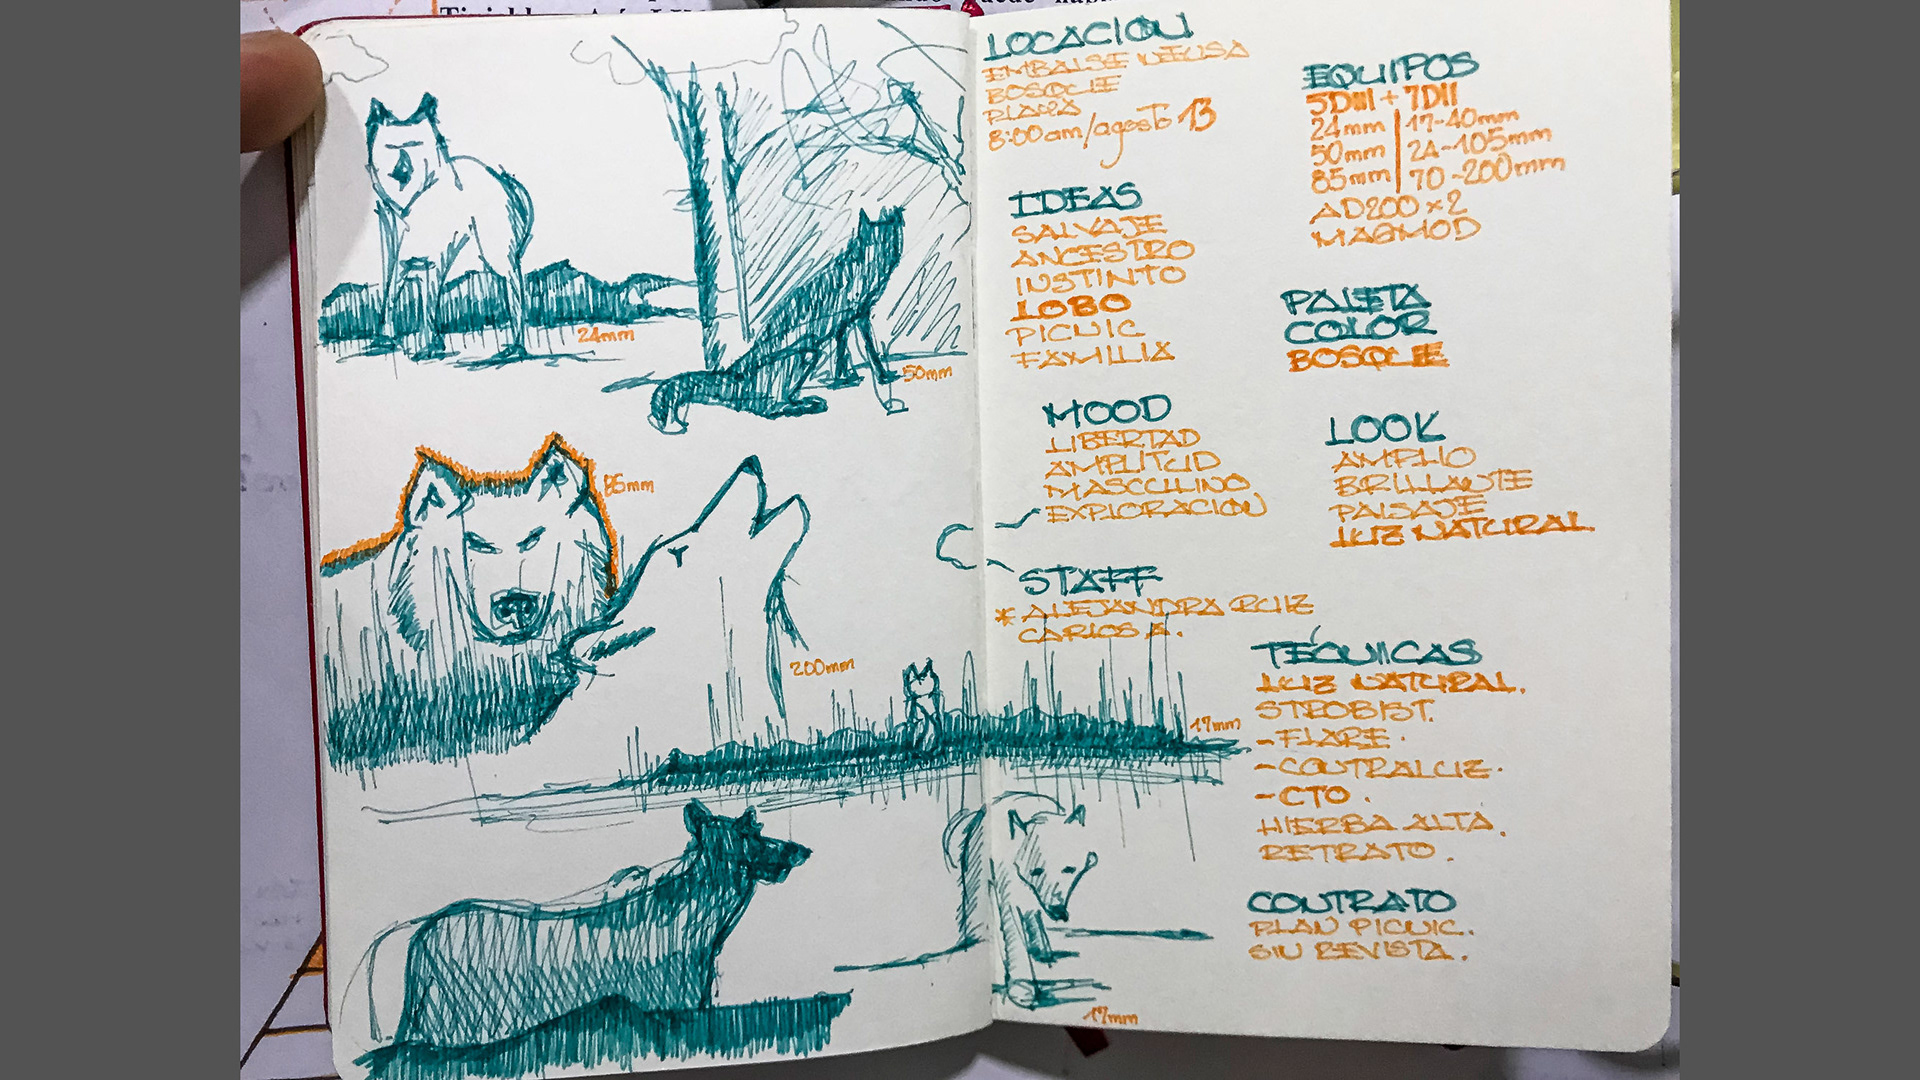 24mm
50mm
85mm
200mm
LOCACION
EMBALSE NEUSA
BOSQUE
PLAYA
8:00am/agosto 13
IDEAS
SALVAJE
ANCESTRO
INSTINTO
LOBO
PICNIC
FAMILIA
MOOD
LIBERTAD
AMPLITUD
MASCULINO
EXPLORACION
STAFF
* ALEJANDRA RUIZ
CARLOS A.
17mm
17mm
EQUIPOS
5DIII + 7DII
24mm | 17-40mm
50mm | 24-105mm
85mm | 70-200mm
AD200 x2
MAGMOD
PALETA
COLOR
BOSQUE
LOOK
AMPLIO
BRILLANTE
PAISAJE
LUZ NATURAL
TÉCNICAS
LUZ NATURAL.
STROBIST.
- FLARE.
- CONTRALUZ.
- CTO.
HIERBA ALTA.
RETRATO.
CONTRATO
PLAN PICNIC.
SIN REVISTA.